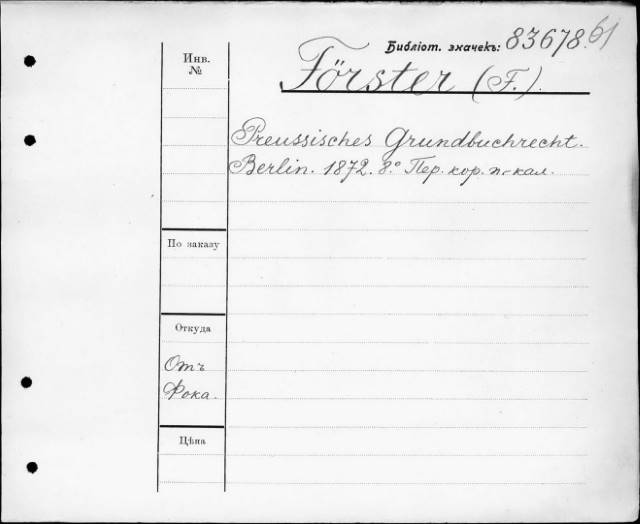 Библіот. значекъ: 83678.61
Инв. №
Förster (F.).
Preussisches Grundbuchrecht.
Berlin. 1872. 8° Пер. кор. п.-кал.
По заказу
Откуда
Отъ
Фока.
Цѣна